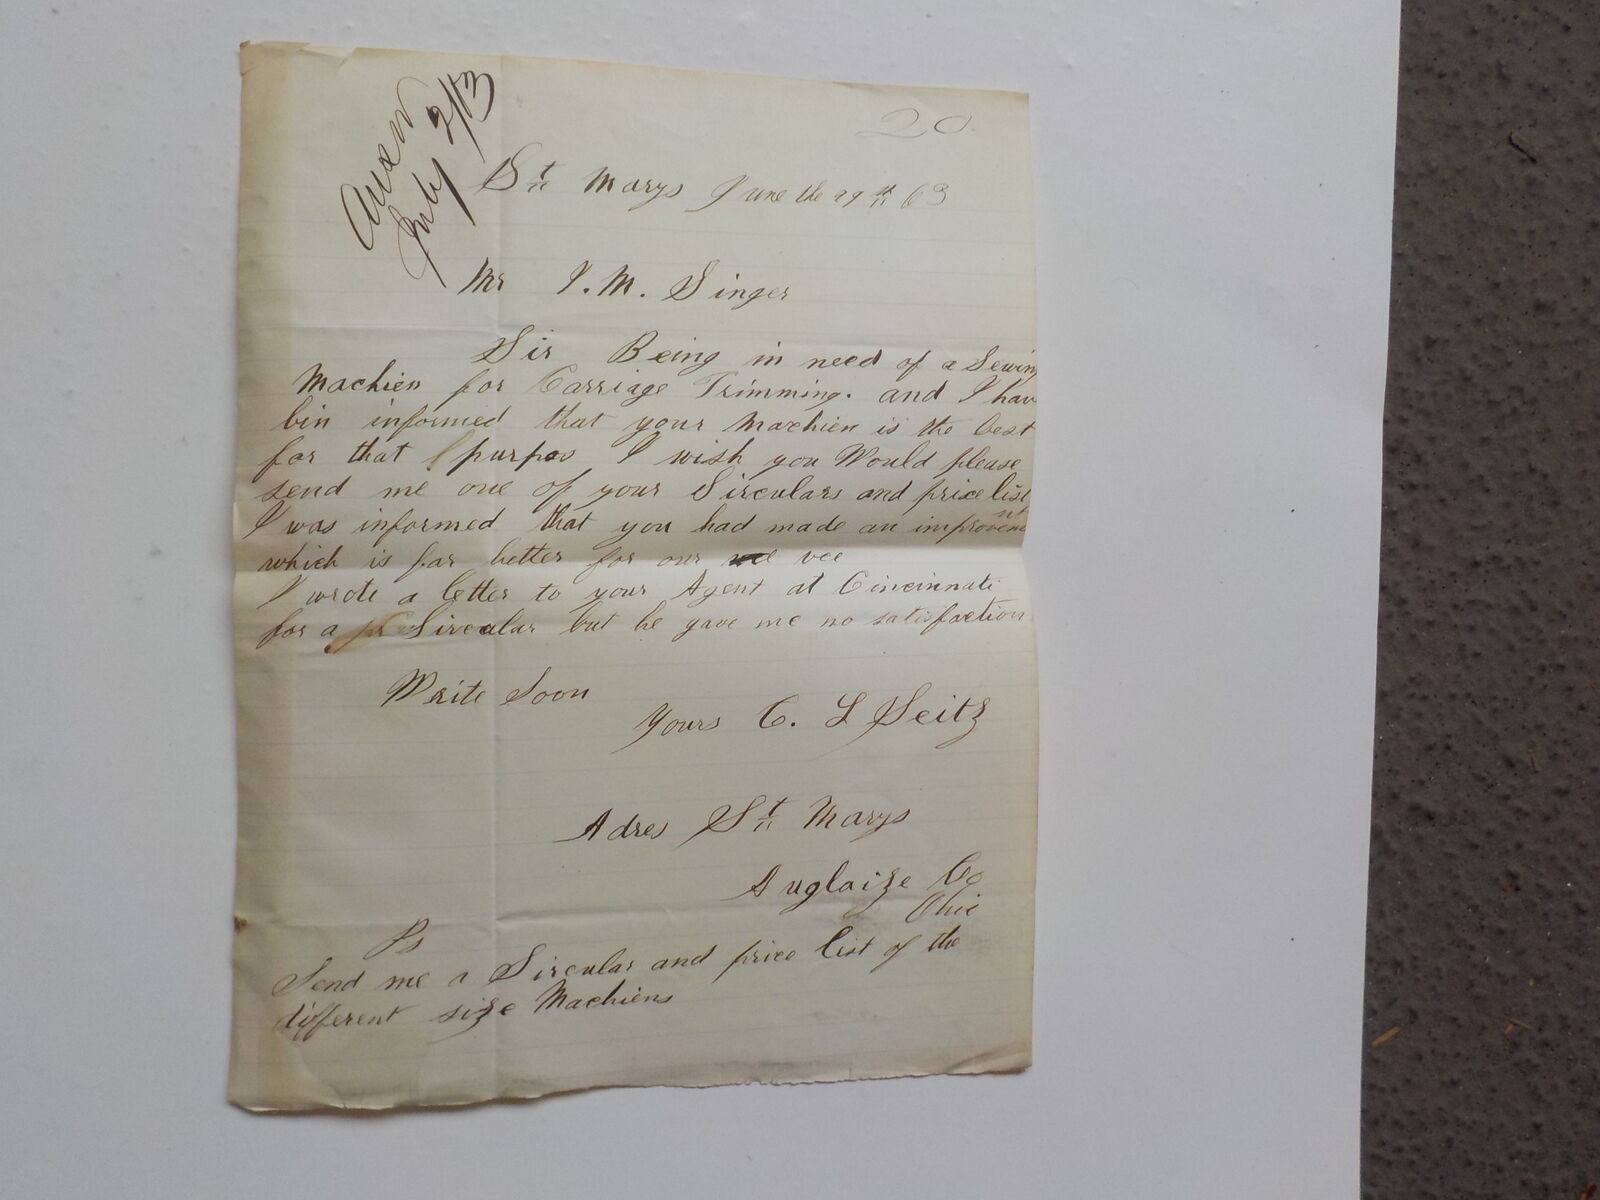 20
Answ
July 2/13
St Marys June the 29th 63
Mr I. M. Singer
Sir Being in need of a Sewing
Machien for Carriage Trimming. and I hav
bin informed that your Machien is the best
for that purpos I wish you Would please
send me one of your Sirculars and price list
I was informed that you had made an improvemnt
which is far better for our vce
I wrote a letter to your Agent at Cincinnati
for a Sircular but he gave me no satisfaction
Write Soon
Yours C. L Seitz
Adres St Marys
Auglaize Co
Ohio
Ps
Send me a Sircular and price list of the
different size Machiens